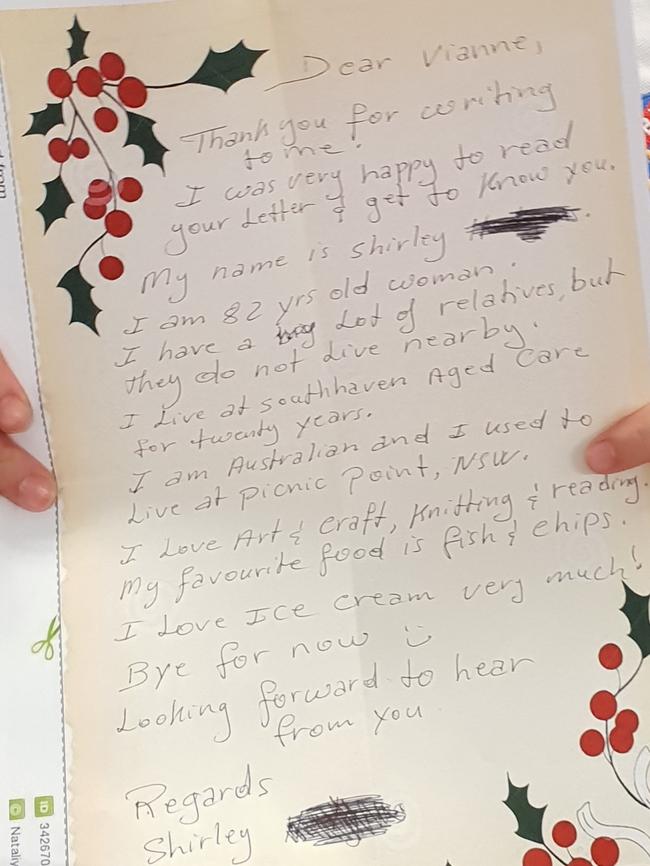 Dear Vianne,
Thank you for writing
to me.
I was very happy to read
your Letter & get to Know you.
My name is Shirley
I am 82 yrs old woman.
I have a Lot of relatives, but
they do not Live nearby.
I Live at Southhaven Aged Care
for twenty years.
I am Australian and I used to
Live at Picnic Point, NSW.
I Love Art & Craft, Knitting & reading.
My favourite food is fish & chips.
I Love Ice cream very much!
Bye for now
Looking forward to hear
from you
Regards
Shirley
from
ID 342670
© Nataliy